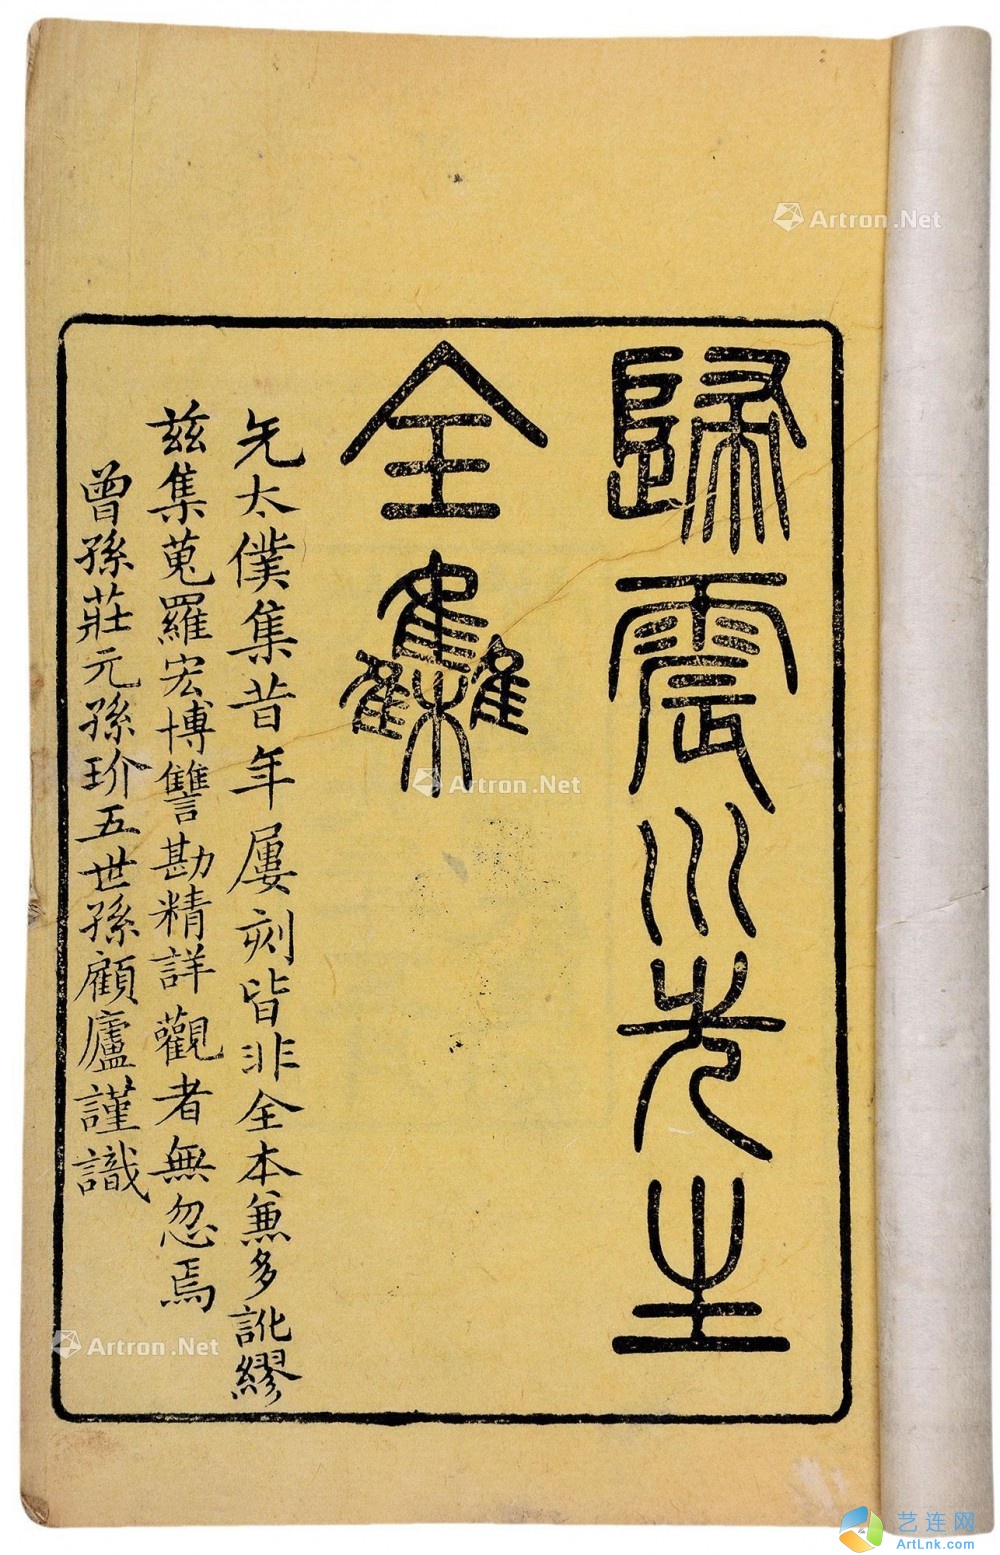 歸震川先生
全集
先太僕集昔年屢刻皆非全本兼多訛繆
茲集蒐羅宏博讐勘精詳觀者無忽焉
曾孫莊元孫玠五世孫顧廬謹識
Artron.Net
Artron.Net
Artron.Net
艺连网
ArtLnk.com